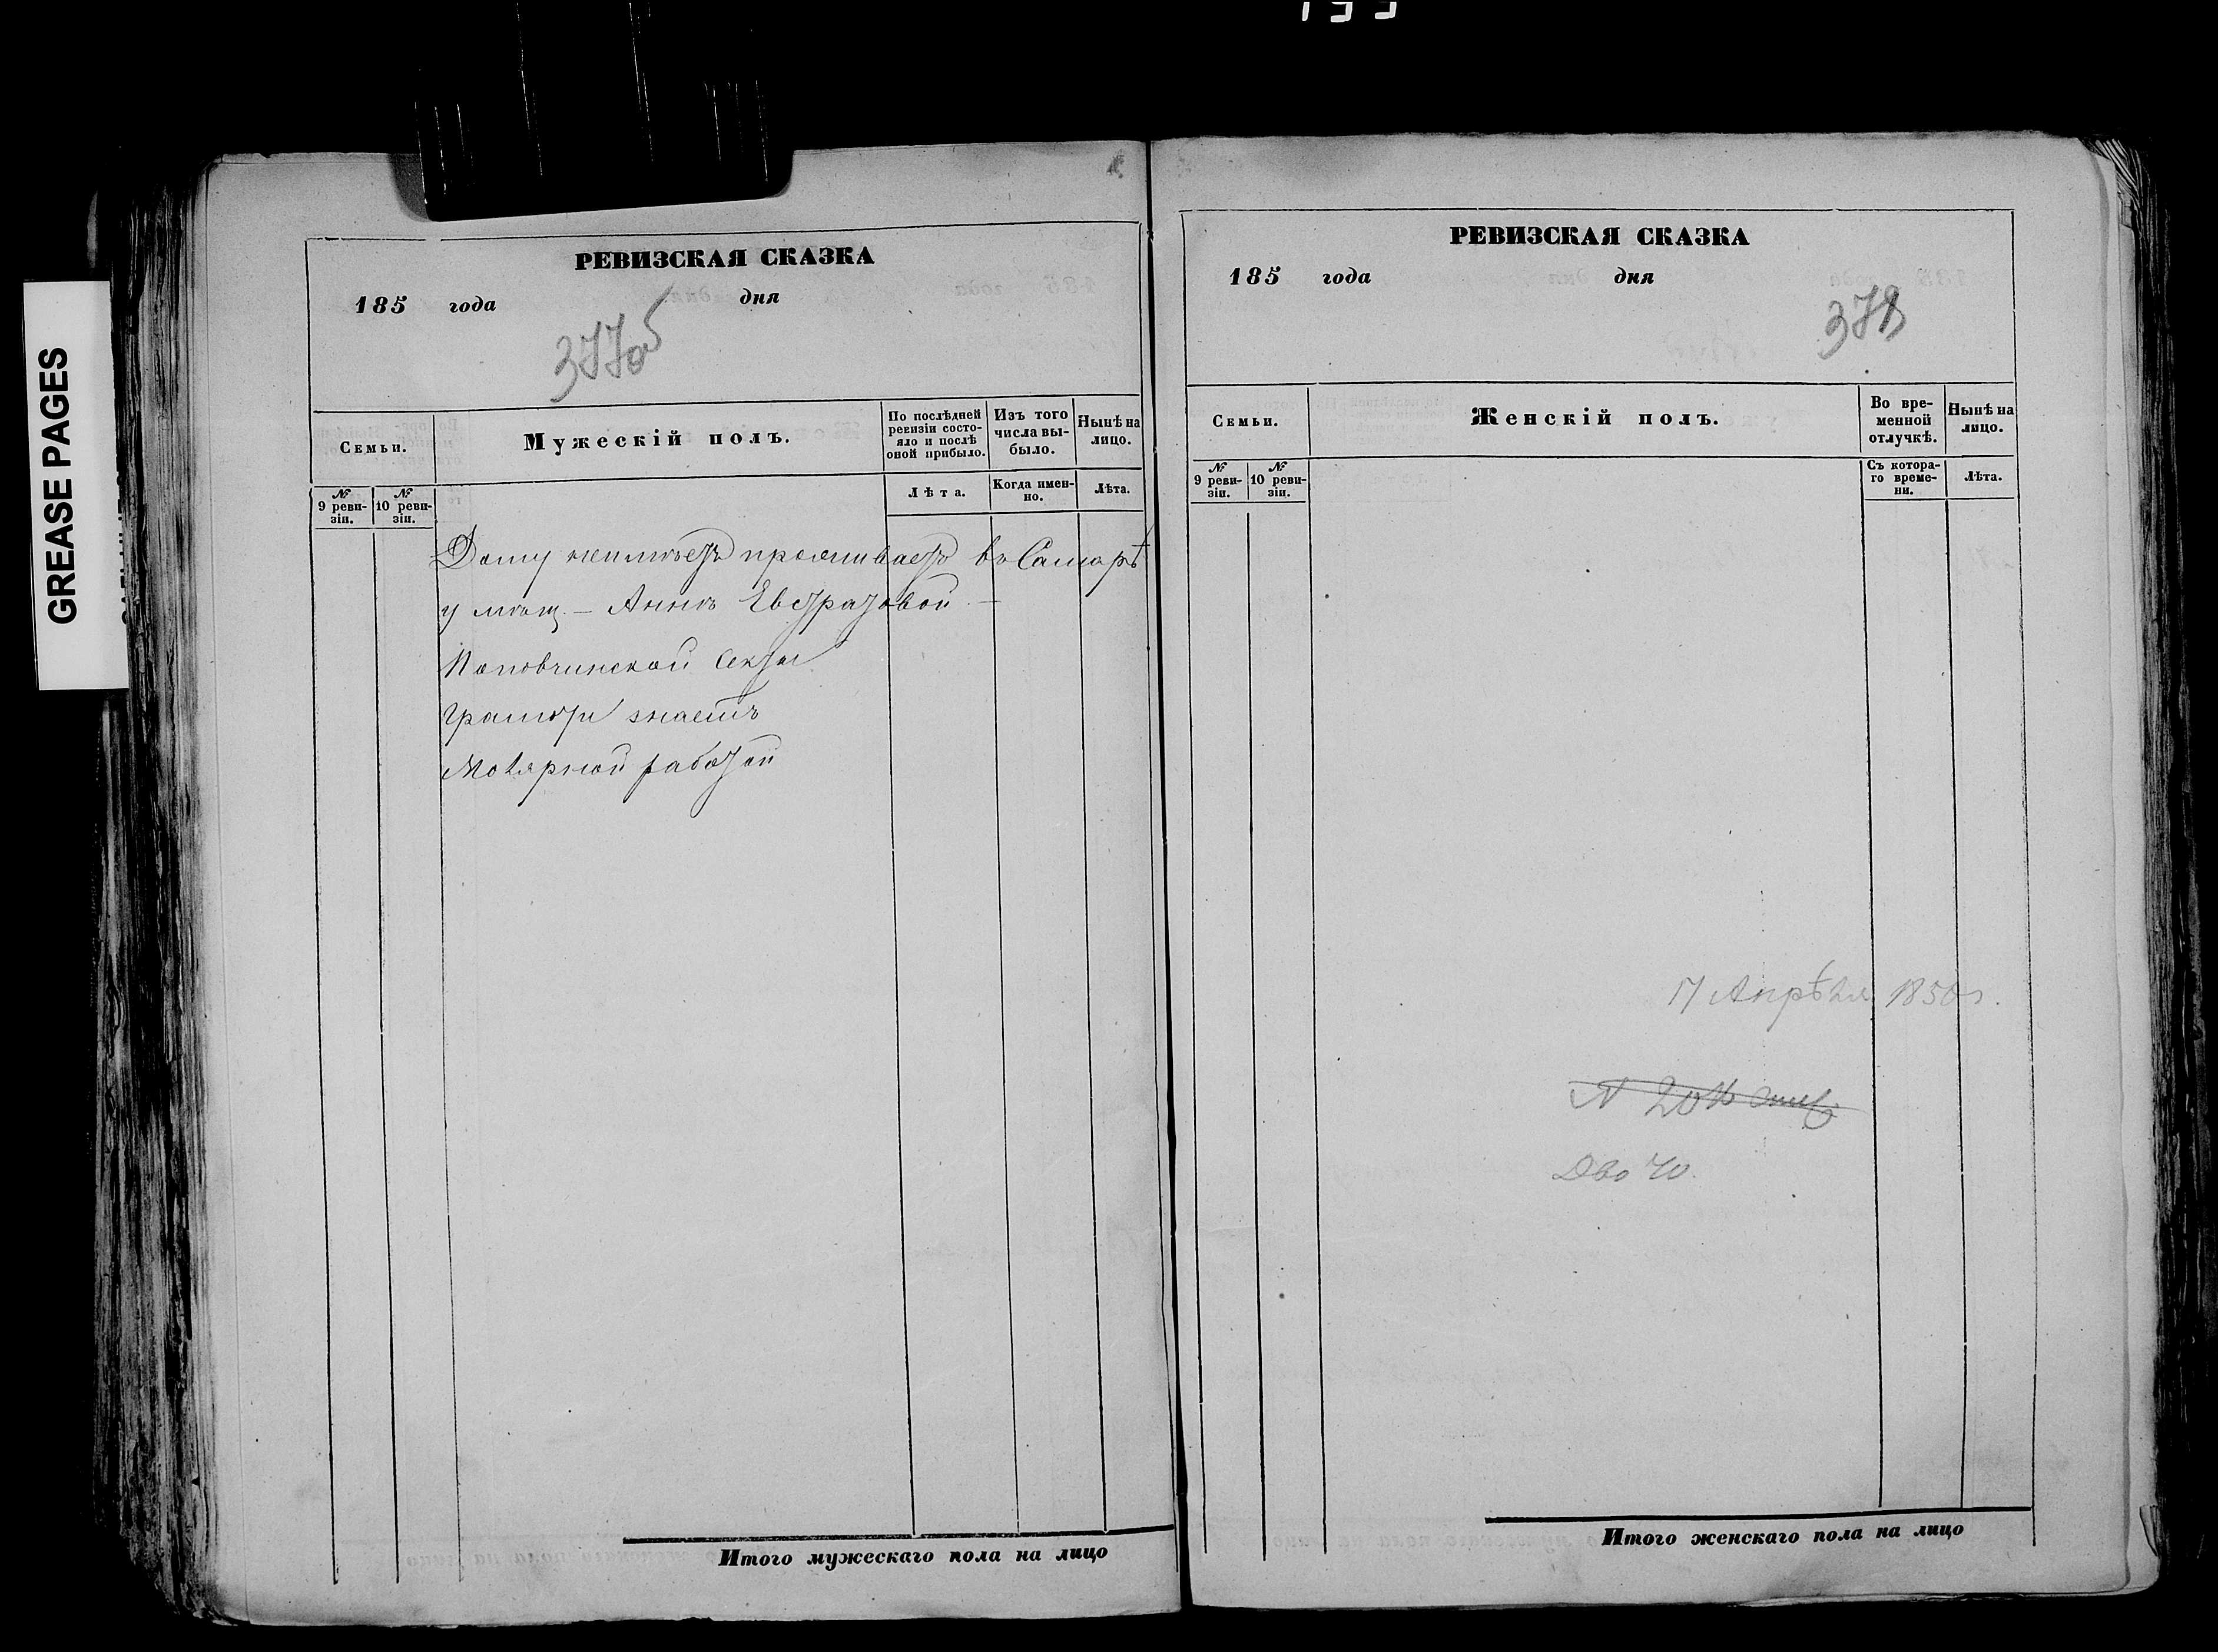 GREASE PAGES
РЕВИЗСКАЯ СКАЗКА
185 года дня
377об
Семьи.
Мужескій полъ.
По послѣдней ревизіи состо-
яло и послѣ
оной прибыло.
Изъ того
числа вы-
было.
Нынѣ на
лицо.
№
9 реви-
зіи.
№
10 реви-
зіи.
Лѣта.
Когда имен-
но.
Лѣта.
Дому неимѣетъ проживаетъ въ Самарѣ
у мѣщ. – Аннѣ Евстратовой –
Поповчинской секты
Грамоти знаетъ
Молярной работой
Итого мужескаго пола на лицо
РЕВИЗСКАЯ СКАЗКА
185 года дня
378
Семьи.
Женскій полъ.
Во вре-
менной
отлучкѣ.
Нынѣ на
лицо.
№
9 реви-
зіи.
№
10 реви-
зіи.
Съ котора-
го време-
ни.
Лѣта.
17 Апрѣля 1850 г.
Итого женскаго пола на лицо